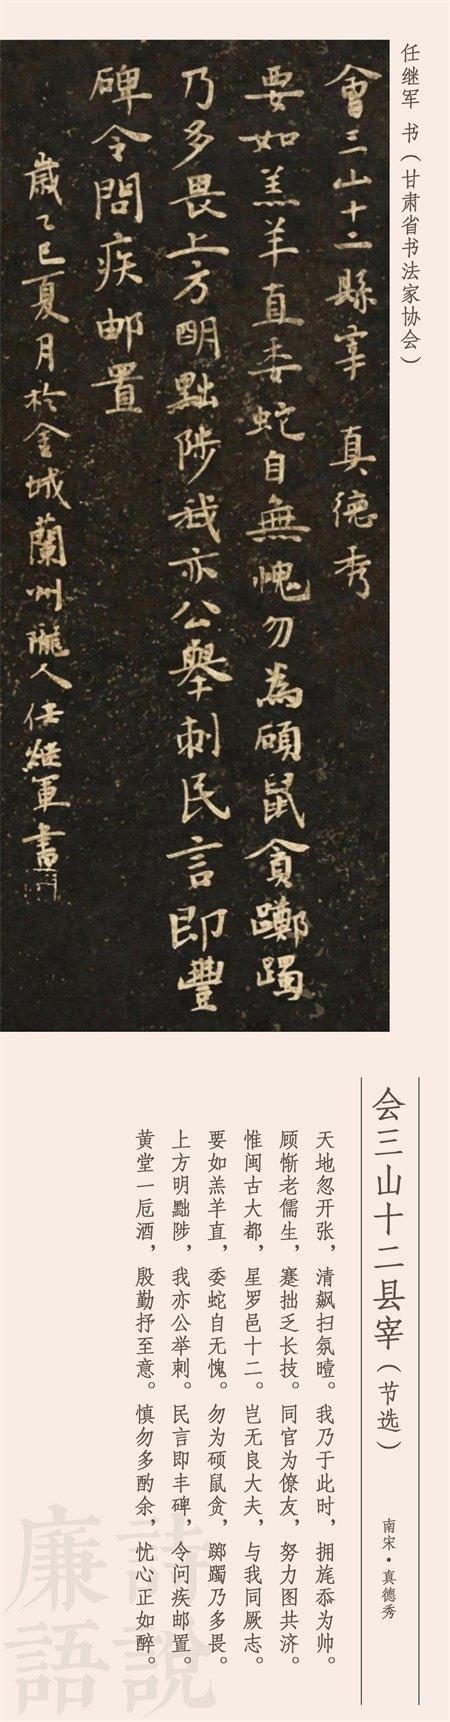 任继军 书（甘肃省书法家协会）
會三山十二縣宰 真德秀
要如羔羊直委蛇自無愧勿為碩鼠貪躑躅
乃多畏上方明黜陟我亦公舉刺民言即豐
碑令問疾郵置
歲乙巳夏月於金城蘭州隴人任継軍書
会三山十二县宰（节选）
南宋·真德秀
天地忽开张，清飙扫氛曀。我乃于此时，拥旄忝为帅。
顾惭老儒生，蹇拙乏长技。同官为僚友，努力图共济。
惟闽古大都，星罗邑十二。岂无良大夫，与我同厥志。
要如羔羊直，委蛇自无愧。勿为硕鼠贪，踯躅乃多畏。
上方明黜陟，我亦公举刺。民言即丰碑，令问疾邮置。
黄堂一卮酒，殷勤抒至意。慎勿多酌余，忧心正如醉。
詩說
廉語